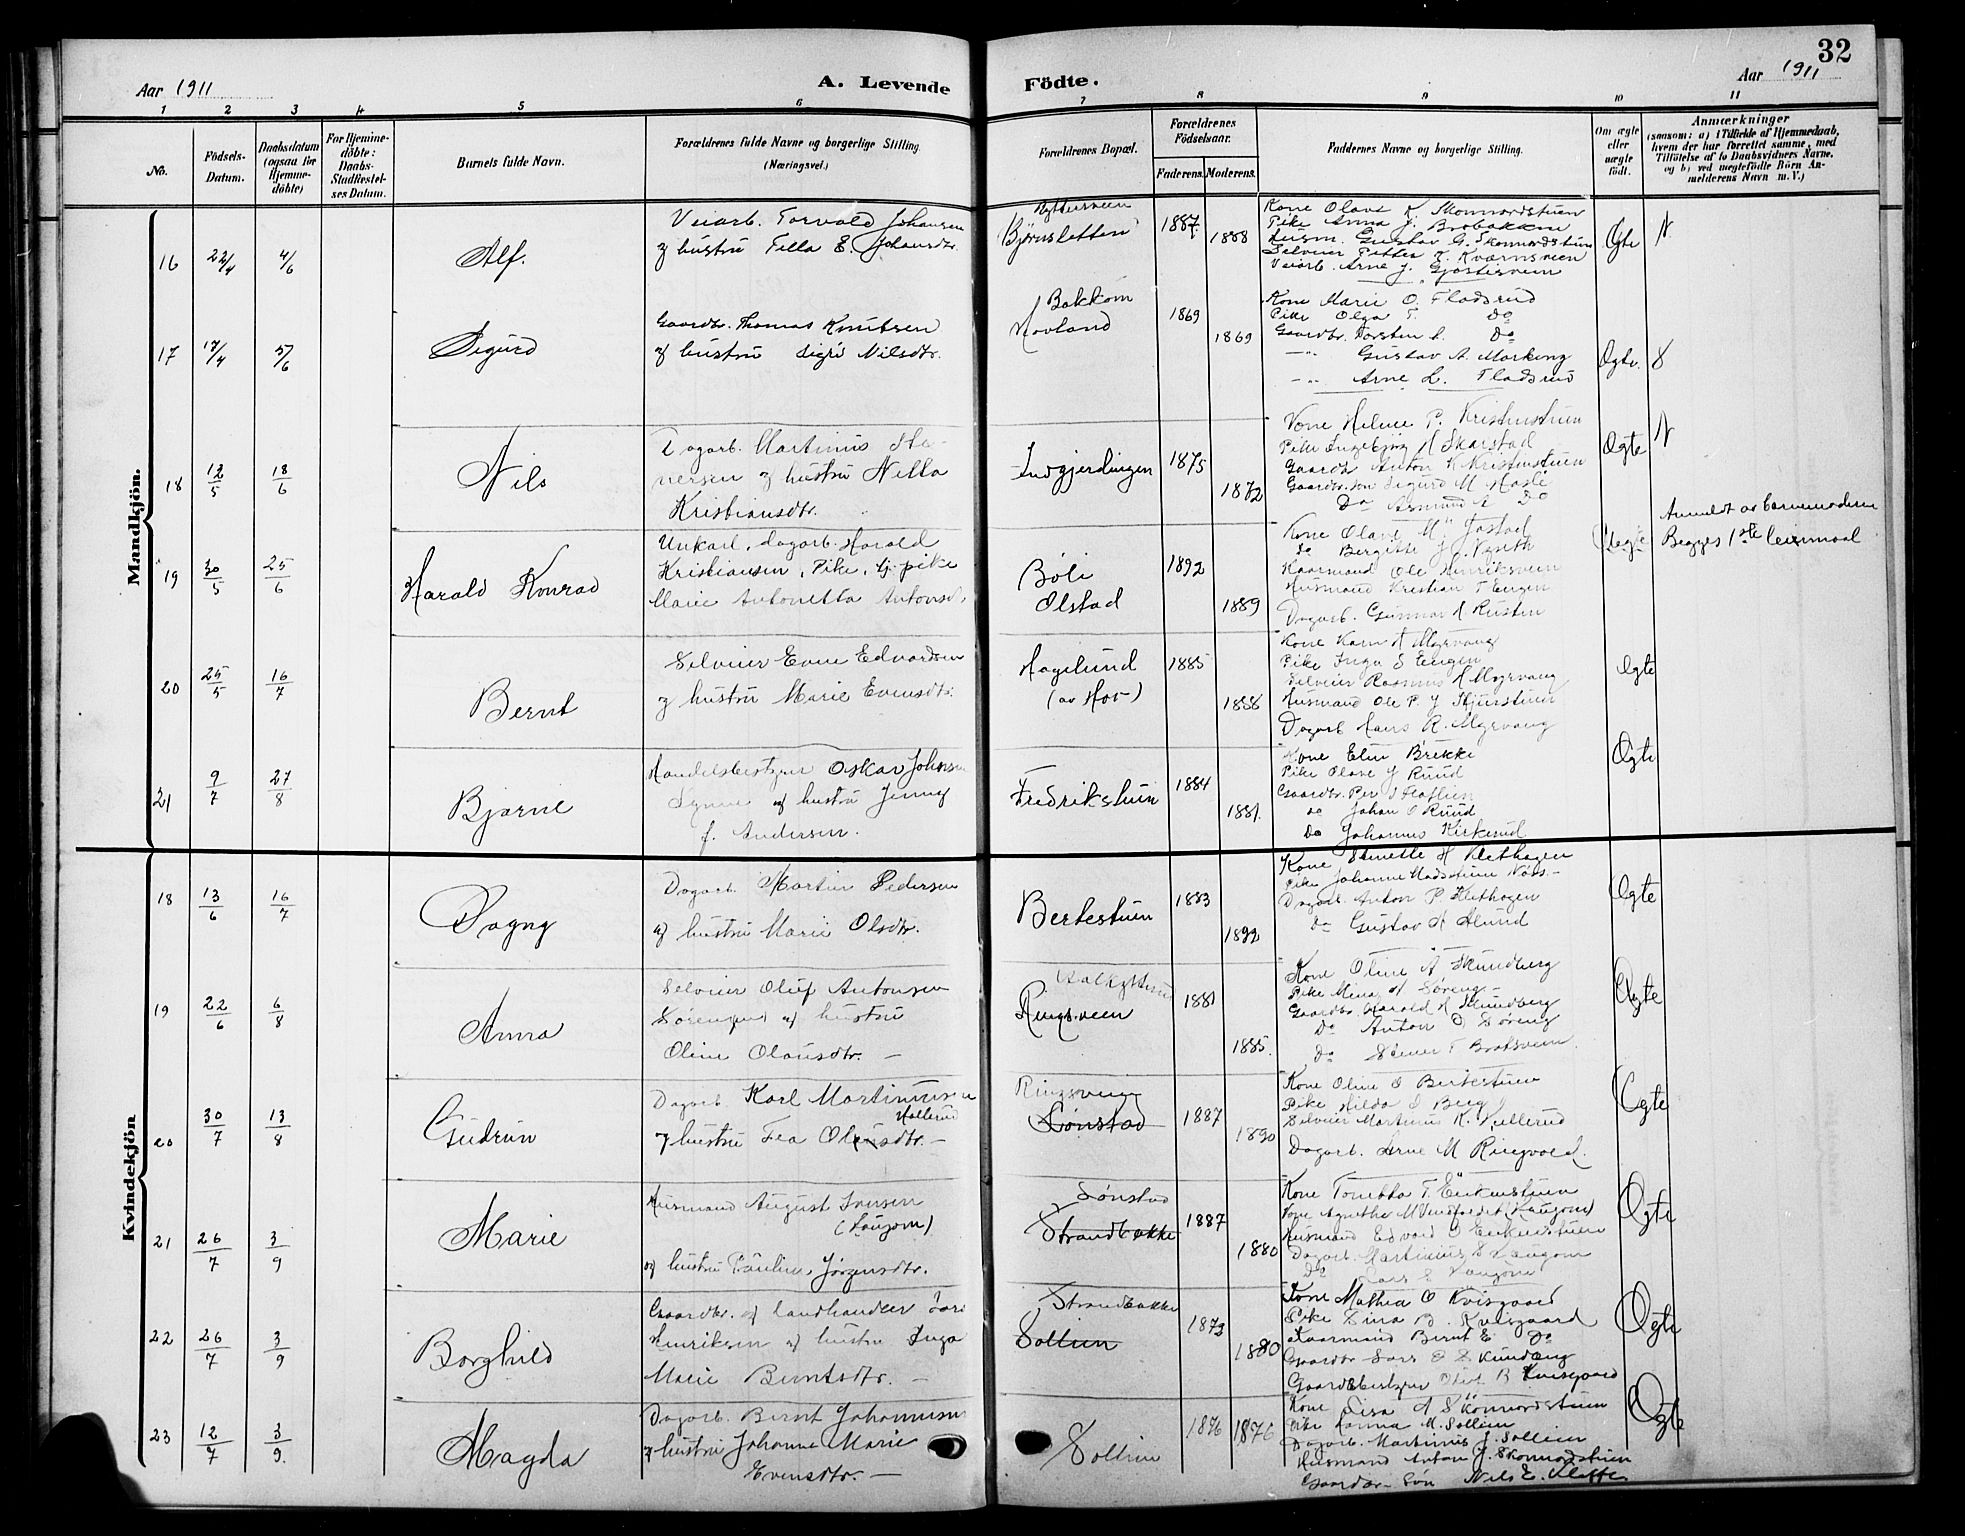 32
Aar 1911
A. Levende Födte.
Aar 1911
1 2 3 4 5 6 7 8 9 10 11
No.
Födsels-
Datum.
Daabsdatum
(ogsaa for
Hjemme-
döbte)
For Hjemme-
döbte:
Daabs-
Stadfestel-
ses Datum.
Barnets fulde Navn.
Forældrenes fulde Navne og borgerlige Stilling.
(Næringsvei.)
Forældrenes Bopæl.
Forældrenes
Födselsaar.
Faderens. Moderens.
Faddernes Navne og borgerlige Stilling.
Om ægte
eller
uægte
födt.
Anmærkninger
(saasom: a) i Tilfælde af Hjemmedaab,
hvem der har forrettet samme, med
Tilföielse af to Daabsvidners Navne,
og b) ved uægtefödte Börn An-
melderens Navn m. V.)
Mandkjön.
16 22/4 4/6 Alf.
Veiarb. Torvald Johansen
og hustru Tilla E. Johansdtr.
Bjørnsletten
1887 1888
Kone Olave K. Skonnordstuen
Pike Anna J. Brobakken
Husm. Gustav G. Skonnordstuen
Selveier Petter K. Kværnsveen
Veiarb. Arne J.
Ægte N.
17 17/4 5/6 Sigurd
Gaardbr. Thomas Knutsen
og hustru Sigri Nilsdtr.
Bakkom
Hovland
1869 1869
Kone Marie O. Fladsrud
Pike Olga T. Do
Gaardbr. Torsten L. Do
Gustav A. Markeng
Arne L. Fladsrud
Ægte.
18 12/5 18/6 Nils
Dagarb. Martinius Ste-
nersen og hustru Nilla
Kristiansdtr.
1875 1872
Kone Helene P. Kristenstuen
Pike Ingebjørg H Skarstad
Gaardb Anton K Kristenstuen
Gaardbr. søn Sigurd M Hasli
Do Asmund A Do
Ægte N
19 30/5 25/6 Harald Konrad
Unkarl, dagarb. Harald
Kristiansen, Pike, tj. pike
Marie Antonetta Antonsd.
Bøli
Olstad
1892 1889
Kone Olave M. Jøstad
do Bergitte J.
Kaarmand Ole Henriksveen
Husmand Kristian T Engen
Dagarb. Gunnar A Rusten
Uegte
Anmeldt av barnemoderen
Begges 1ste leiermaal
20 25/5 16/7 Bernt
Selveier Even Edvardsen
og hustru Marie Evensdtr.
Hagelund
(av Hov)
1885 1888
Kone Karn A Myrvang
Pike Inga S Engen
Selveier Rasmus A Myrvang
Husmand Ole P. J
Dagarb Hans R. Myrvang
Ægte
21 9/7 27/8 Bjarne
Handelsbestyrer Oskar Johnsen
og hustru Jenny
f. Andersen.
Fredrikstuen
1884 1881.
Kone Elin Brekke
Pike Olave J Ruud
Gaardbr. Per J
do Johan O Ruud
Do Johannes Kirkerud
Ægte
Kvindekjön
18 13/6 16/7 Dagny
Dagarb. Martin Pedersen
og hustru Marie Olsdtr.
Bertestuen
1883 1892
Kone H Klethagen
Pike Johanne
Dagarb. Anton P. Klethagen
do Gustav H
Ægte
19 22/6 6/8 Anna
Selveier Oluf Antonsen
Sørengen og hustru
Oline Olausdtr. —
Ringsveen
1881 1885.
Kone Oline A Skundberg
Pike Mina A Søreng
Gaardbr. Harald H Skundberg
Do Anton O Søreng
Do Stener T
Ægte
20 30/7 13/8 Gudrun
Dagarb. Karl Martinussen
Hallerud
og hustru Fea Olausdtr. —
Ringsveen
Sønstad
1887 1890
Kone Oline O Bertestuen
Pike Hilda O Berg
Selveier Martinus K.
Dagarb. Arne M Ringvold.
Ægte
21 26/7 3/9 Marie
Husmand August Jensen
(Laugom)
og hustru Pauline Jørgensdtr.
Sønstad
Strandbakke
1887 1880
Kone Tonetta T. Eriksenstuen
Husmand Edvard O
Dagarb. Martinius S Laugom
Do Lars S Laugom
Ægte
22 26/7 3/9 Borghild
Gaardbr. og landhandler Lars
Henriksen og hustru Inga
Marie Berntsdtr. —
Strandbakke
Sollien
1873 1880
Kone Mathea O Kvisgaard
Pike Dina B. Kvisgaard
Kaarmand Bernt E Do
Gaardbr Lars O
Gaardbestyrer B Kvisgaard
Ægte
23 12/7 3/9. Magda
Dagarb. Bernt Johannesen
og hustru Johanne Marie
Evensdtr. —
Sollien
1876 1876
Kone Lisa A Skonnordstuen
Pike Hanna M. Sollien
Dagarb. Martinius J. Sollien
Husmand Anton J. Skonnordstuen
Gaardbr. Søn Nils E. Kletten
Ægte